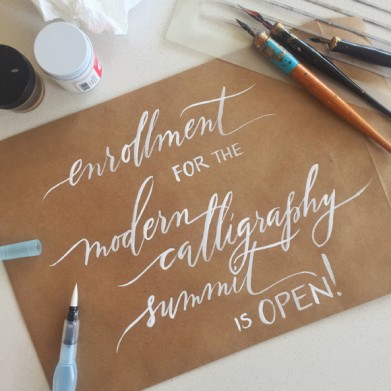 enrollment
FOR THE
modern
calligraphy
summit
IS OPEN!